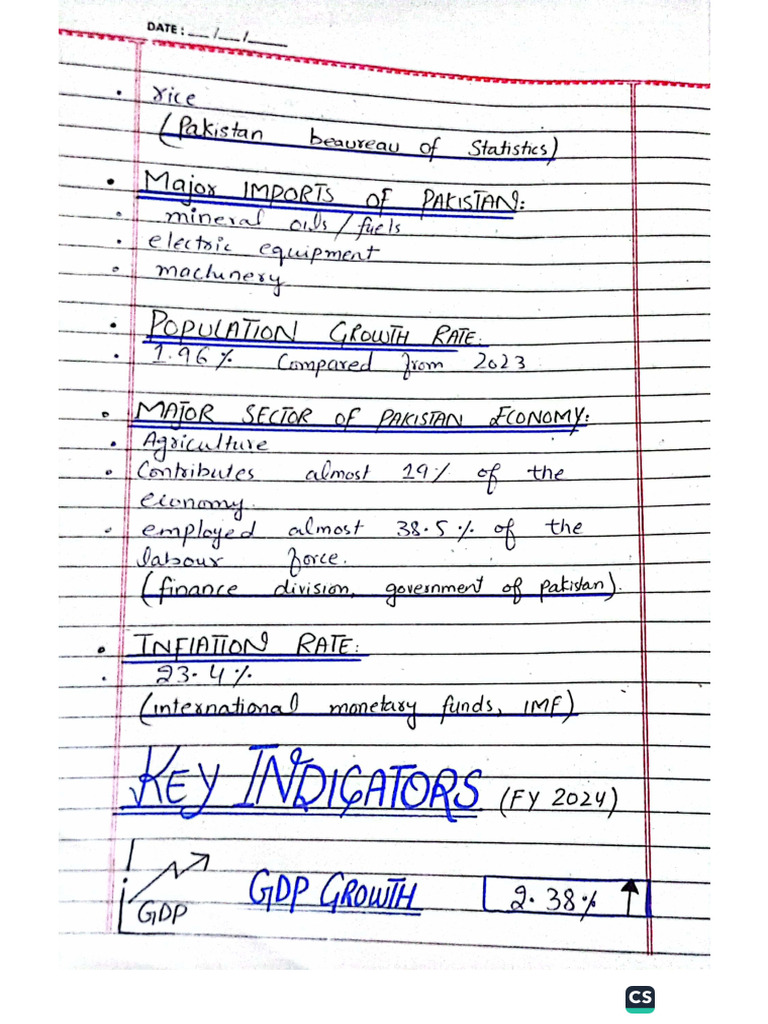 DATE: __/__/____
• rice
(Pakistan beaureau of Statistics)
• Major IMPORTS OF PAKISTAN:
• mineral oils/fuels
• electric equipment
• machinery
• POPULATION GROWTH RATE:
• 1.96% Compared from 2023
• MAJOR SECTOR OF PAKISTAN ECONOMY:
• Agriculture
• Contributes almost 19% of the
economy.
• employed almost 38.5% of the
labour force.
(finance division, government of pakistan).
• INFLATION RATE:
• 23.4%
(international monetary funds, IMF)
KEY INDICATORS (FY 2024)
GDP GDP GROWTH 2.38% ↑
CS